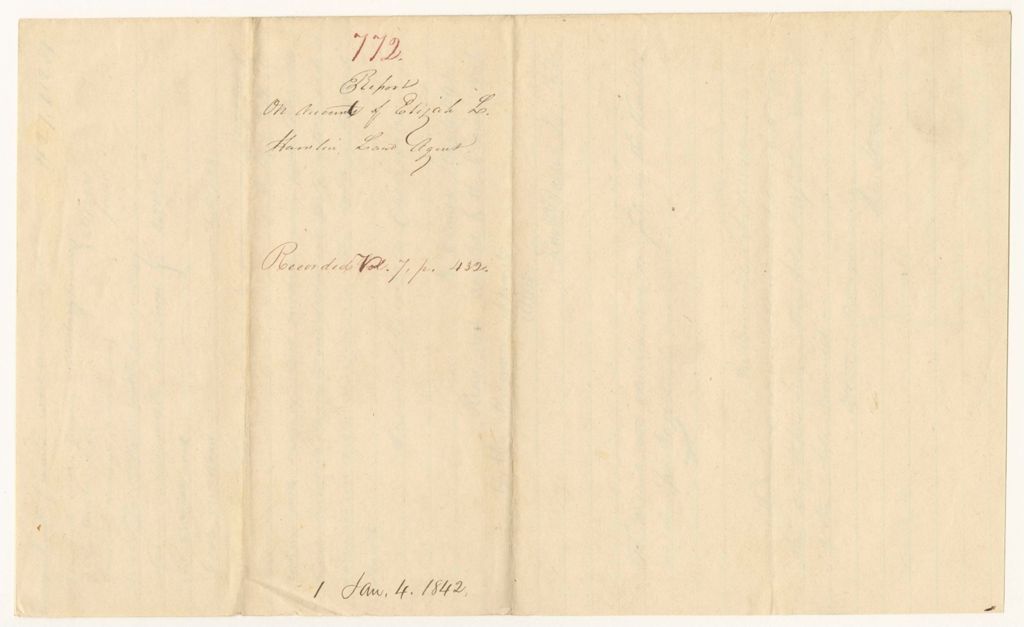 772.
Report
On Accounts of Elijah L.
Hamlin, Land Agent.
Recorded Vol. 7, p. 432.
1 Jan. 4. 1842.